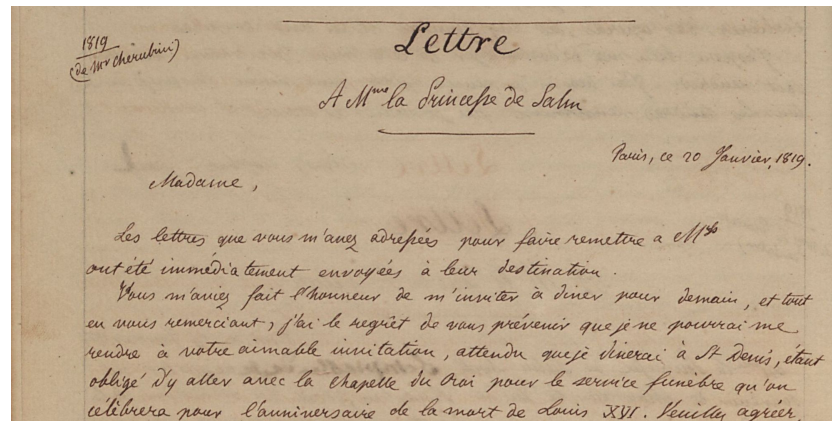 1819
(de Mr Cherubini)
Lettre
A Mme la Princesse de Salm
Paris, ce 20 Janvier, 1819.
Madame,
Les lettres que vous m'avez adressées pour faire remettre a Mrs
ont été immédiatement envoyées à leur destination.
Vous m'aviez fait l'honneur de m'inviter à diner pour demain, et tout
en vous remerciant, j'ai le regrêt de vous prévenir que je ne pourrai me
rendre à votre aimable invitation, attendu que je dinerai à St Denis, étant
obligé d'y aller avec la chapelle du Roi pour le service funèbre qu'on
célèbrera pour l'anniversaire de la mort de Louis XVI. Veuillez agréer,